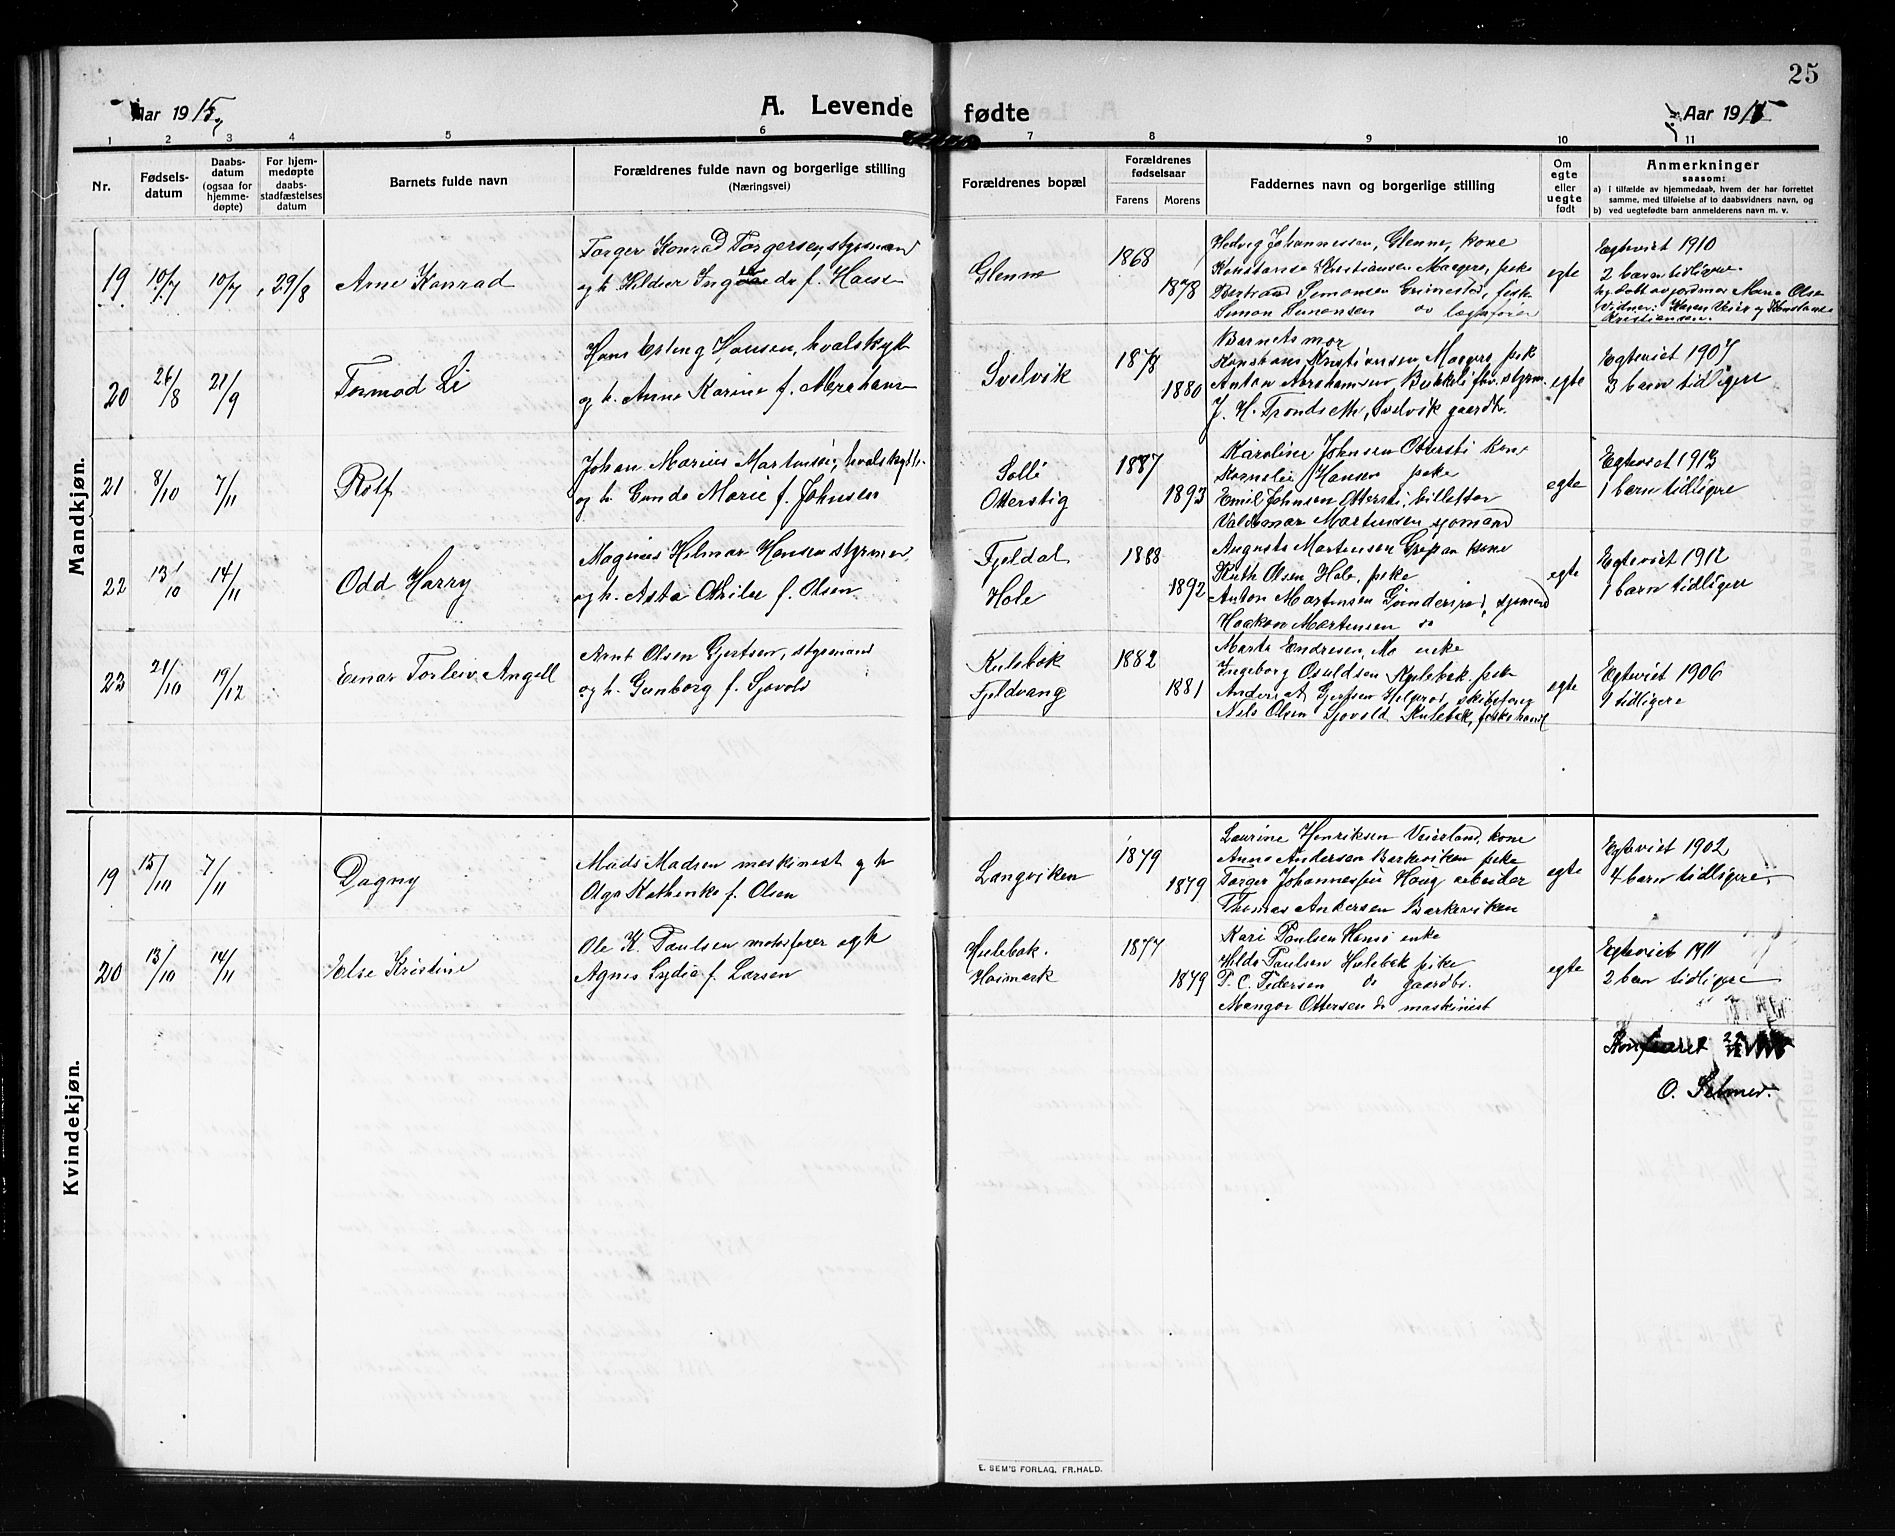 25
Aar 1915
A. Levende fødte
Aar 1915
1 2 3 4 5 6 7 8 9 10 11
Nr.
Fødsels-
datum
Daabs-
datum
(ogsaa for
hjemme-
døpte)
For hjem-
medøpte
daabs-
stadfæstelses
datum
Barnets fulde navn
Forældrenes fulde navn og borgerlige stilling
(Næringsvei)
Forældrenes bopæl
Forældrenes
fødselsaar
Farens Morens
Faddernes navn og borgerlige stilling
Om
egte
eller
uegte
født
Anmerkninger
saasom:
a) i tilfælde av hjemmedaab, hvem der har forrettet
samme, med tilføielse af to daabsvidners navn, og
b) ved uegtefødte barn anmelderens navn m. v.
Mandkjøn.
19 10/7 10/7 29/8 Arne Konrad
Torger Konrad Torgersen, styrmand
og h. Hildur f.
Glenne
1868
1878
Hedvig Johannessen, Glenne, kone
Konstanse Kristiansen Magerø, pike
Bertrand Simonsen Grimestad, fisk
Simon Simonsen do
egte
Egteviet 1910
2 barn tidligere.
20 26/8 21/9 Tormod Li
Hans Esling Hansen, hvalskyt
og h. Anne Karine f. Abrahams
Svelvik
1878
1880
Barnets mor
Konstanse Kristiansen Magerø, pike
Anton Abrahamsen Bukkeli fhv. styrm.
J. H. Trondseth, Svelvik gaardbr.
egte
Egteviet 1907
3 barn tidligere
21 8/10 7/11 Rolf
Johan Marius Martinsen, hvalskytt.
og h. Gunda Marie f. Johnsen
Solli
Otterstig
1887
1893
Karoline Johnsen Otersti kone
Kornelie Hansen pike
Emil Johnsen Ottersti, billettør
Valdemar Martinsen sjømand
egte
Egteviet 1913
1 barn tidligere
22 13/10 14/11 Odd Harry
Magnus Hilmar Hansen styrman
og h. Asta Othilie f. Olsen
Fjeldal
Hole
1888
1892
Augusta Martinsen Grepan kone
Ruth Olsen Hole, pike
Anton Martinsen Gunderød, sjømand
Haakon Martinsen do
egte
Egteviet 1912
1 barn tidligere
23 21/10 19/12 Einar Torleiv Angell
Arnt Olsen Gjertsen, styrmand
og h. Gunborg f. Sjøvold
Kulebæk
Fjeldvang
1882
1881
Marte Endresen, Mo enke
Ingeborg Osuldsen Kulebæk pike
Anders A Gjertsen Helgerød skibsfører
Nils Olsen Sjøvold Kulebæk, fiskehandl
egte
Egteviet 1906
4 tidligere
Kvindekjøn.
19 15/10 7/11 Dagny
Mads Madsen maskinist og h
Olga Kathinka f. Olsen
Langviken
1879
1879
Laurine Henriksen Veierland, kone
Anna Andersen Barkeviken pike
Torger Johannessen Haug arbeider
Thomas Andersen Barkeviken
egte
Egteviet 1902
4 barn tidligere.
20 13/10 14/11 Else Kristine
Ole K. Paulsen motorfører og h
Agnes Lydia f. Larsen
Hulebak.
Høimark
1877
1879
Kari Paulsen Hansø enke
Hilda Paulsen Hulebak pike
P. C. Pedersen do gaardbr.
Mangor Ottersen do maskinist
egte
Egteviet 1911
2 barn tidligere
Konfereret
O. Selmer.
E. SEM'S FORLAG, FR.HALD.